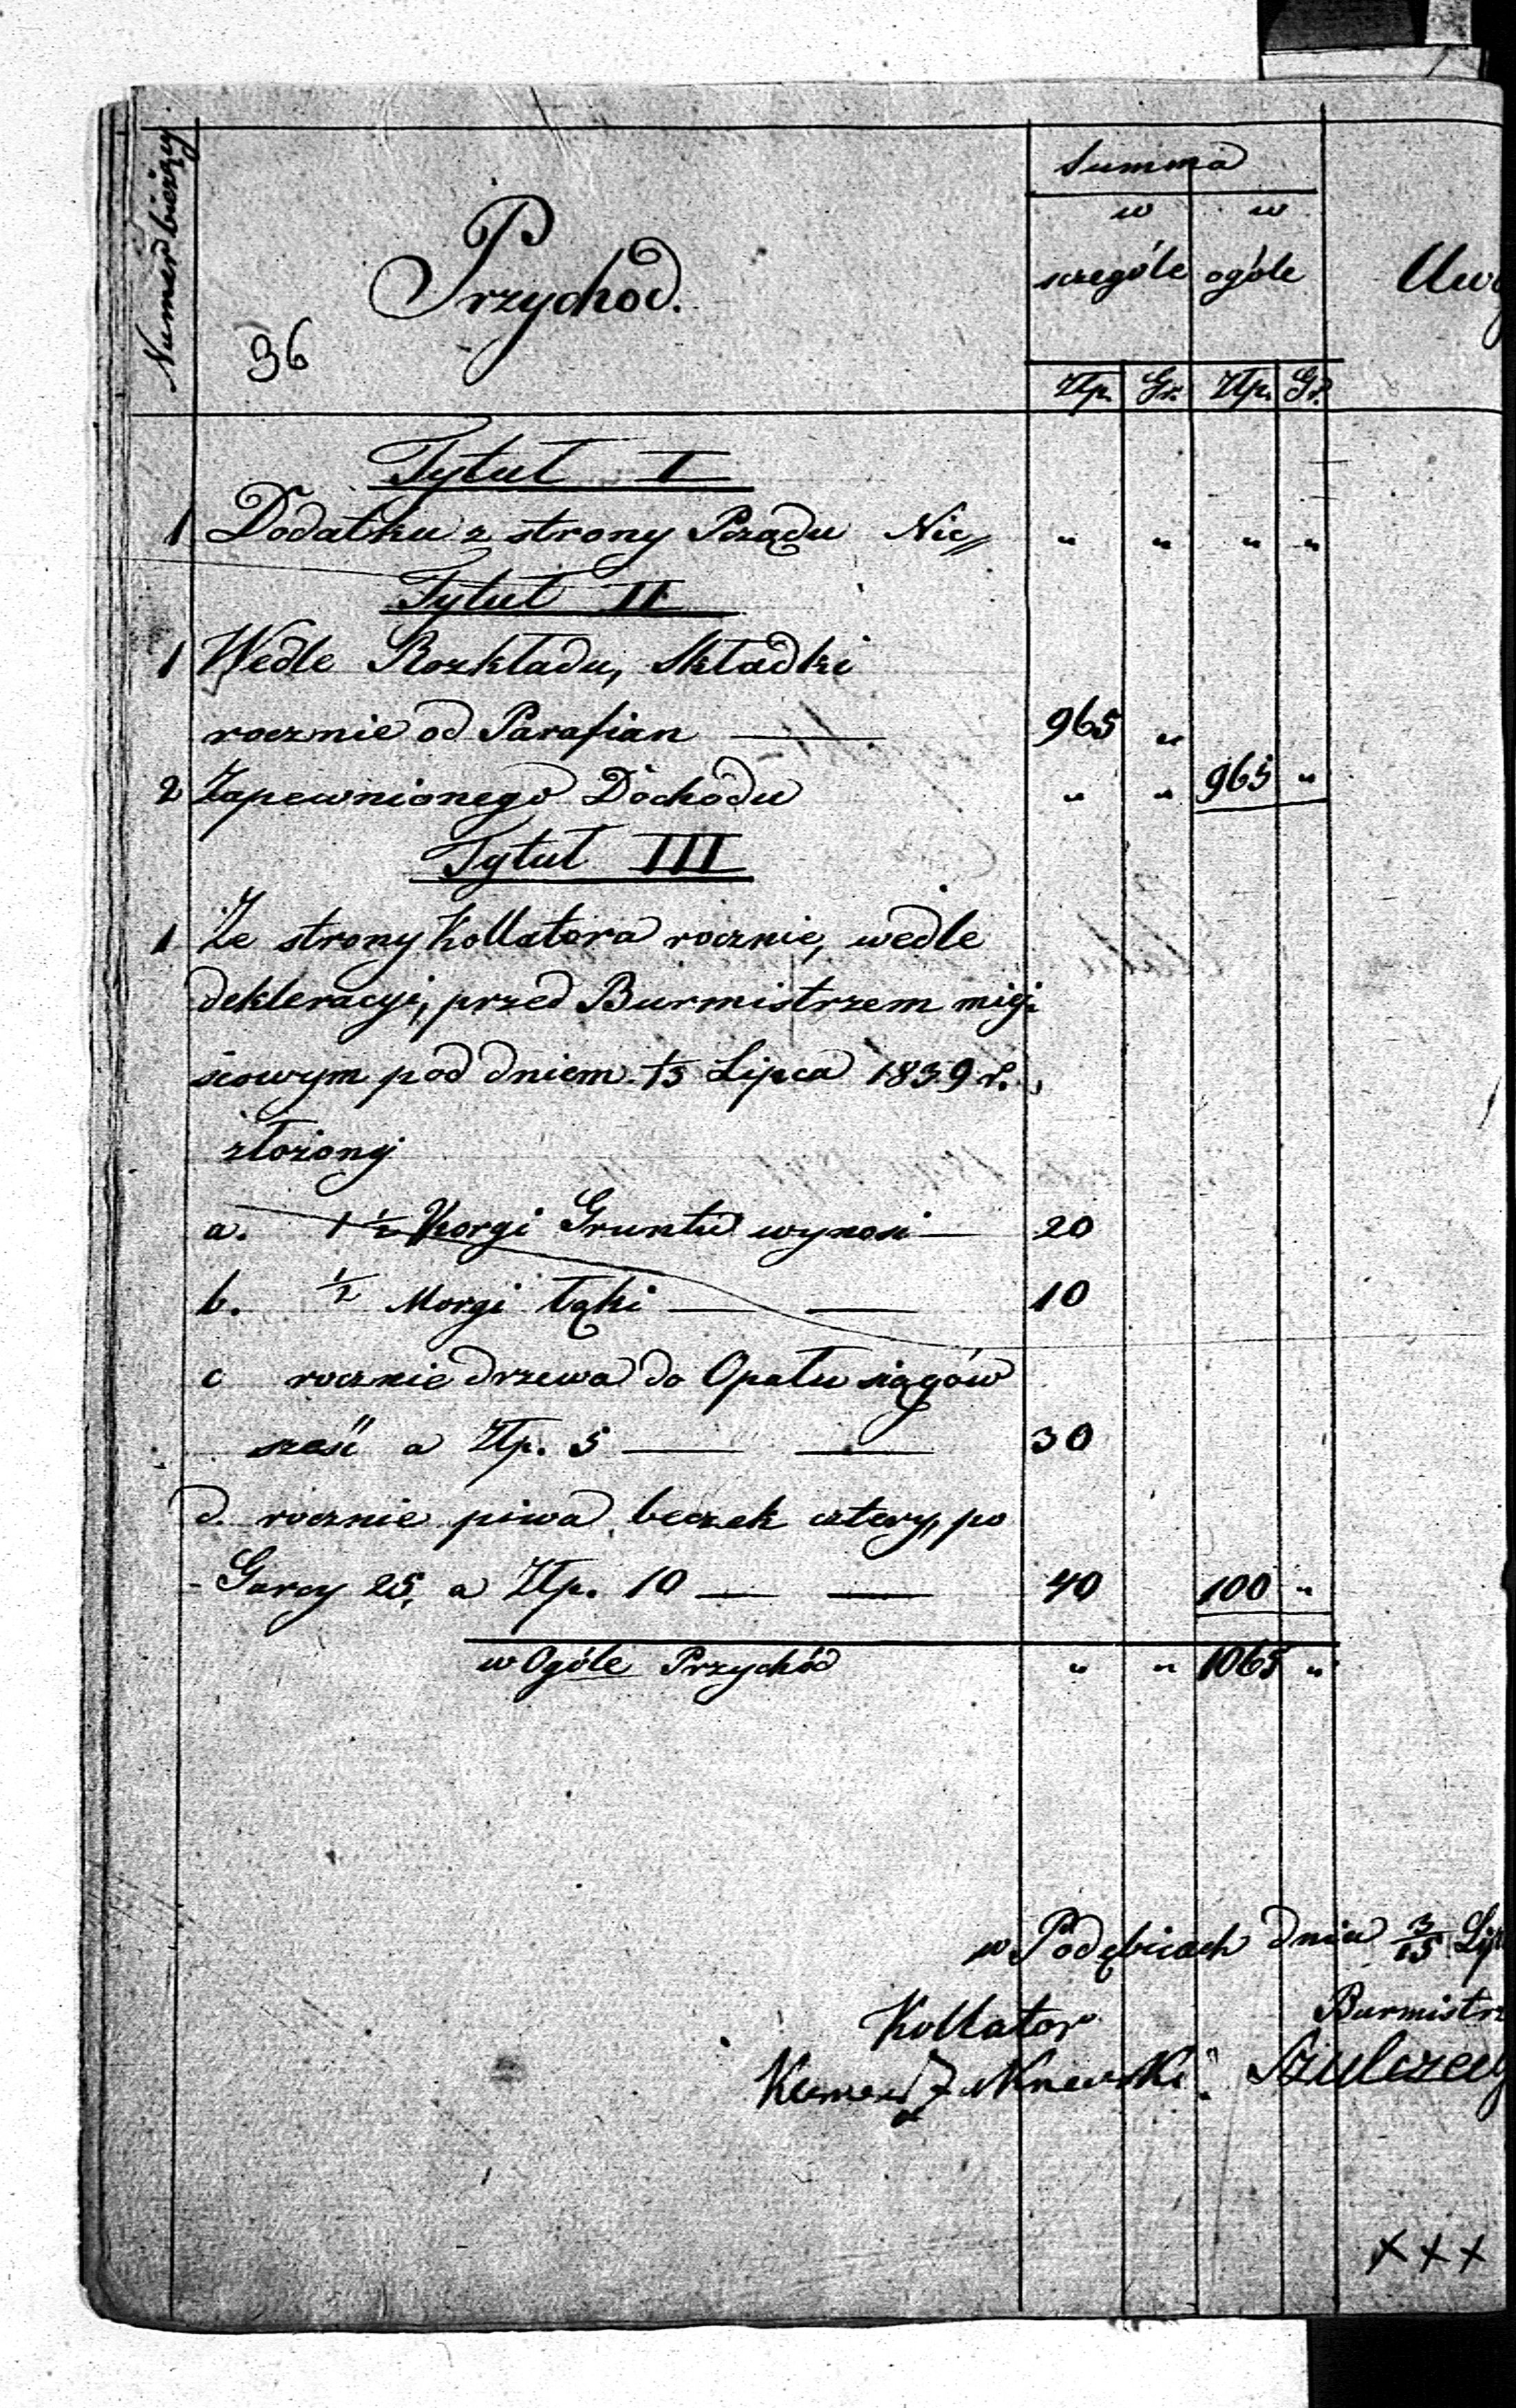 Numer bieżący
Przychod.
36
Summa
w
szczególe
w
ogóle
Uwa
Złp. Gr. Złp. Gr.
Tytuł I
1 Dodatku z strony Rządu Nic „ „ „ „
Tytuł II
1 Wedle Rozkładu, Składki
rocznie od Parafian — 965 „
2 Zapewnionego Dochodu „ „ 965 „
Tytuł III
1 Ze strony Kollatora rocznie, wedle
dekleracyi, przed Burmistrzem miej
scowym pod dniem 15 Lipca 1839 r.
złożony
a. 1 1/2 Morgi Gruntu wynosi — 20
b. 1/2 Morgi łąki — — 10
c rocznie drzewa do Opału siągów
sześć a Złp. 5 — — 30
d. rocznie piwa beczek cztery, po
Garcy 25, a Złp. 10 — — 40 100 „
w Ogóle Przychód „ „ 1065 „
w Podębicach dnia 3/15 Lip
Kollator
Burmistrz
Szulczew
+++